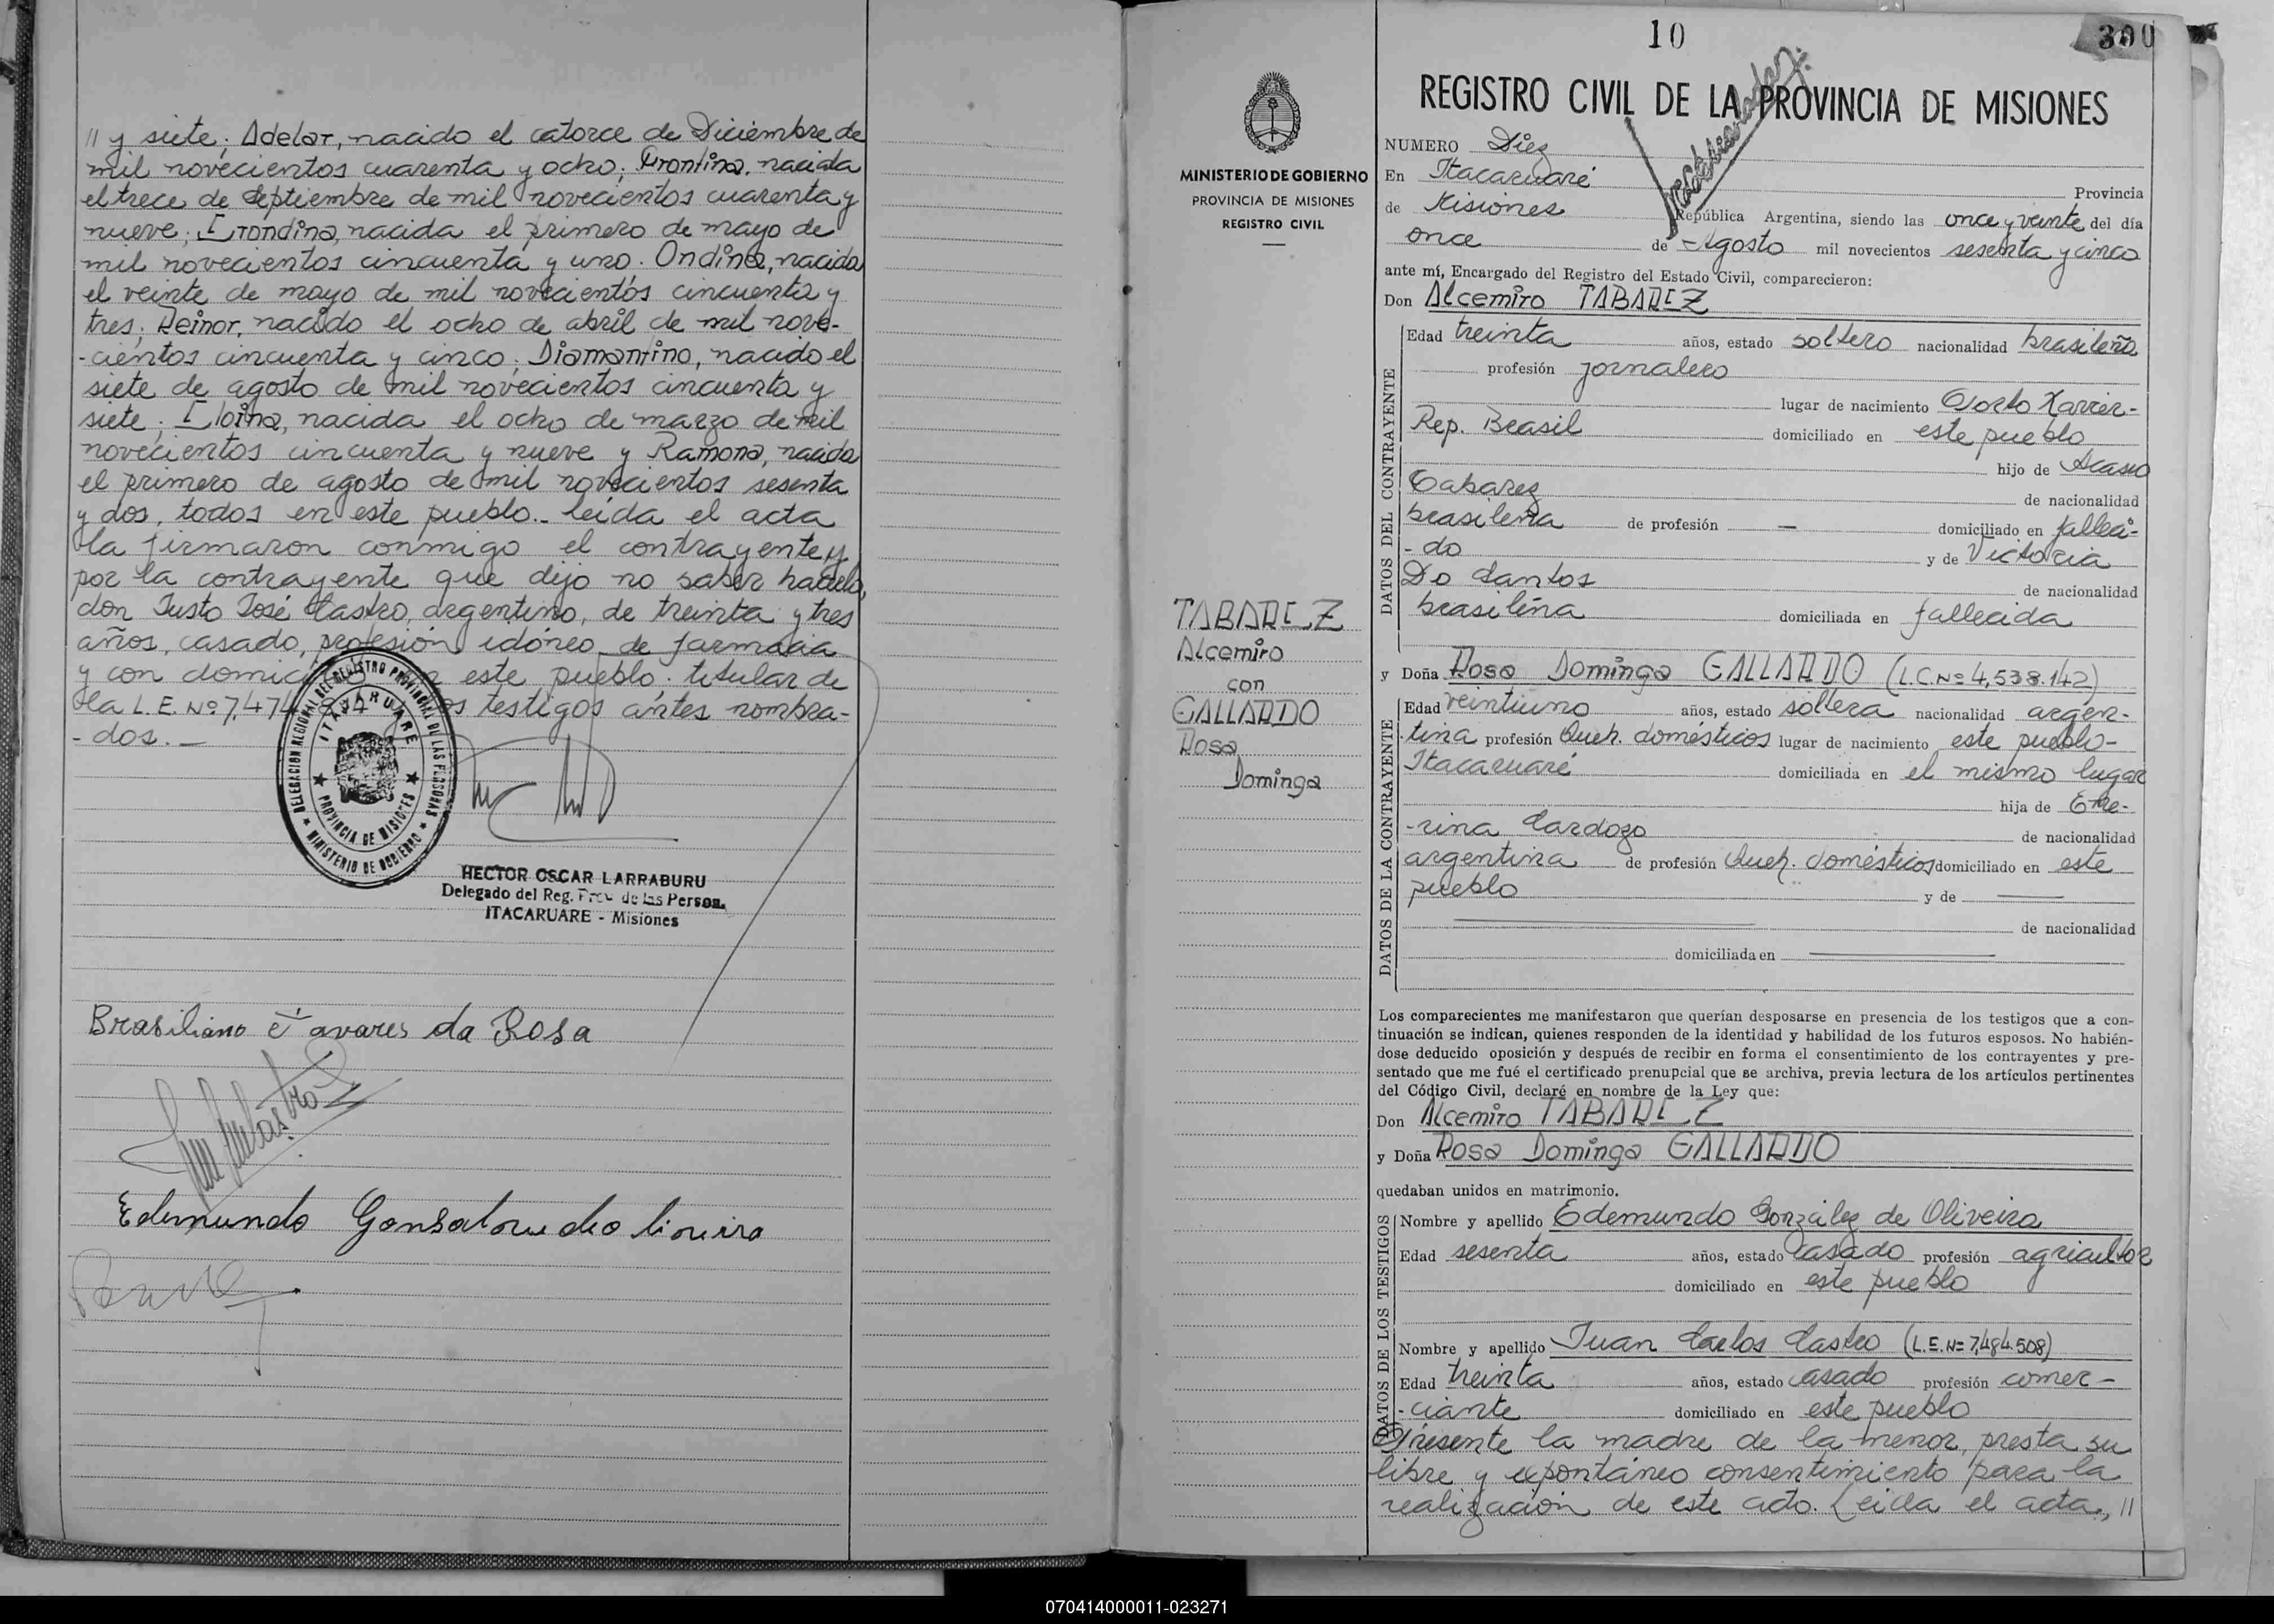 // y siete; Adelar, nacido el catorce de Diciembre de
mil novecientos cuarenta y ocho; nacida
el trece de Septiembre de mil novecientos cuarenta y
nueve; Erondina, nacida el primero de mayo de
mil novecientos cincuenta y uno. Ondina, nacida
el veinte de mayo de mil novecientos cincuenta y
tres; nacido el ocho de abril de mil nove-
-cientos cincuenta y cinco; Diamantino, nacido el
siete de agosto de mil novecientos cincuenta y
siete; nacida el ocho de marzo de mil
novecientos cincuenta y nueve y Ramona, nacida
el primero de agosto de mil novecientos sesenta
y dos, todos en este pueblo.- leída el acta
la firmaron conmigo el contrayente y
por la contrayente que dijo no saber hacerlo,
don Justo José Castro, argentino, de treinta y tres
años, casado, profesión idóneo de farmacia
y con domicilio en este pueblo; titular de
la L.E. Nº 7,474. testigos antes nombra-
-dos.-
DELEGACION REGIONAL DEL REGISTRO PROVINCIAL DE LAS PERSONAS
ITACARUARE
PROVINCIA DE MISIONES
MINISTERIO DE GOBIERNO
HECTOR OSCAR LARRABURU
Delegado del Reg. Prov de las Person.
ITACARUARE - Misiones
Brasiliano Tavares da Rosa
Edemundo
10
300
MINISTERIO DE GOBIERNO
PROVINCIA DE MISIONES
REGISTRO CIVIL
TABAREZ
Alcemiro
con
GALLARDO
Rosa
Dominga
REGISTRO CIVIL DE LA PROVINCIA DE MISIONES
NUMERO Diez
En Itacaruaré Provincia
de Misiones República Argentina, siendo las once y veinte del día
once de Agosto mil novecientos sesenta y cinco
ante mí, Encargado del Registro del Estado Civil, comparecieron:
Don Alcemiro TABAREZ
DATOS DEL CONTRAYENTE
Edad treinta años, estado soltero nacionalidad brasileña
profesión jornalero
lugar de nacimiento Porto Xavier-
Rep. Brasil domiciliado en este pueblo
hijo de Acasio
Tabarez de nacionalidad
brasileña de profesión — domiciliado en falleci-
-do y de Victoria
Do Santos de nacionalidad
brasileña domiciliada en fallecida
y Doña Rosa Dominga GALLARDO (L.C.Nº 4,538.142)
DATOS DE LA CONTRAYENTE
Edad veintiuno años, estado soltera nacionalidad argen-
-tina profesión Queh. domésticos lugar de nacimiento este pueblo-
Itacaruaré domiciliada en el mismo lugar
hija de Eme-
-rina Cardozo de nacionalidad
argentina de profesión Queh. domésticos domiciliado en este
pueblo y de —
de nacionalidad
domiciliada en —
Los comparecientes me manifestaron que querían desposarse en presencia de los testigos que a con-
tinuación se indican, quienes responden de la identidad y habilidad de los futuros esposos. No habién-
dose deducido oposición y después de recibir en forma el consentimiento de los contrayentes y pre-
sentado que me fué el certificado prenupcial que se archiva, previa lectura de los artículos pertinentes
del Código Civil, declaré en nombre de la Ley que:
Don Alcemiro TABAREZ
y Doña Rosa Dominga GALLARDO
quedaban unidos en matrimonio.
DATOS DE LOS TESTIGOS
Nombre y apellido Edemundo González de Oliveira
Edad sesenta años, estado casado profesión agricultor
domiciliado en este pueblo
Nombre y apellido Juan Carlos Castro (L.E.Nº 7,484.508)
Edad treinta años, estado casado profesión comer-
-ciante domiciliado en este pueblo
Presente la madre de la menor, presta su
libre y expontáneo consentimiento para la
realización de este acto. Leída el acta, //
070414000011-023271